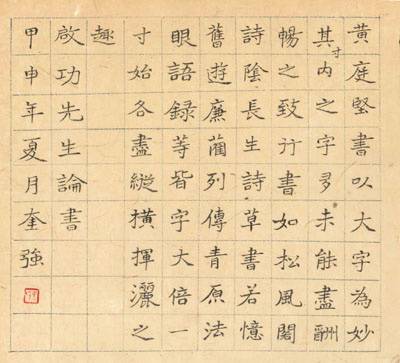 黃庭堅書以大字為妙
其寸內之字多未能盡酣
暢之致行書如松風閣
詩陰長生詩草書若憶
舊遊廉藺列傳青原法
眼語録等皆字大倍一
寸始各盡縱橫揮灑之
趣
啟功先生論書
甲申年夏月奎強